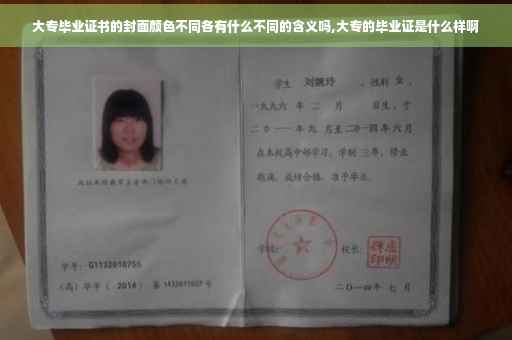 大专毕业证书的封面颜色不同各有什么不同的含义吗,大专的毕业证是什么样啊
学生 刘婉玲 ，性别 女 ，
一九九六 年 二 月 日生，于
二〇一一 年 九 月至 二〇一四 年 六 月
在本校高中部学习，学制 三 年，修业
期满，成绩合格，准予毕业。
校长：
学号： G1132010755
（高）毕字（ 2014 ）第 1432011607 号
二〇一四年 七 月